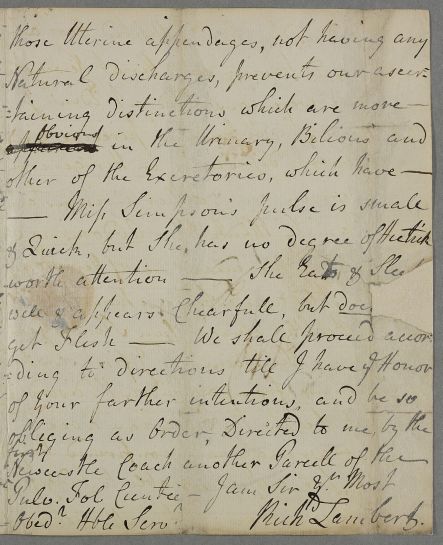 those Uterine appendages, not having any
Natural discharges, prevents our ascer-
-taining distinctions which are more
obvious
in the Urinary, Bilious and
other of the Excretories, which have —
— Miss Simpson's pulse is small
& Quick, but She has no degree of Hectick
worth attention — She Eats & Slee
well & appears Chearfull, but does
get Flesh — We shall proceed accor-
-ding to directions till I have ye Honor
of your farther intentions, and be so
obliging as Order, Directed to me, by the
first
Newcastle Coach another Parcell of the
Pulv. Fol Cicutæ — I am Sir Yr Most
Obedt. Hble Servt.
Richd Lambert.